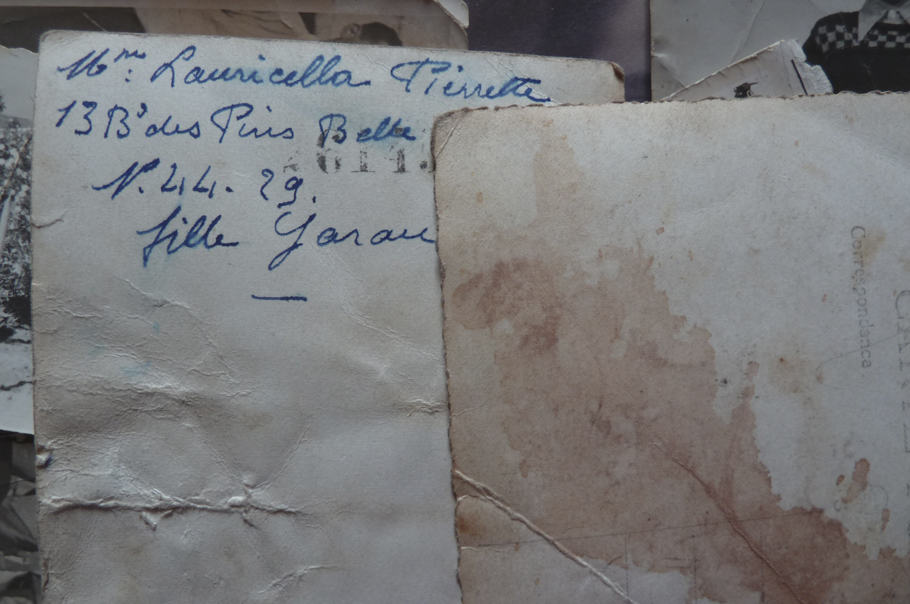 Mme: Lauricella Pierrette
13 Bd des Pins Belle
N. 44. 29.
fille Garau
6145
Correspondance